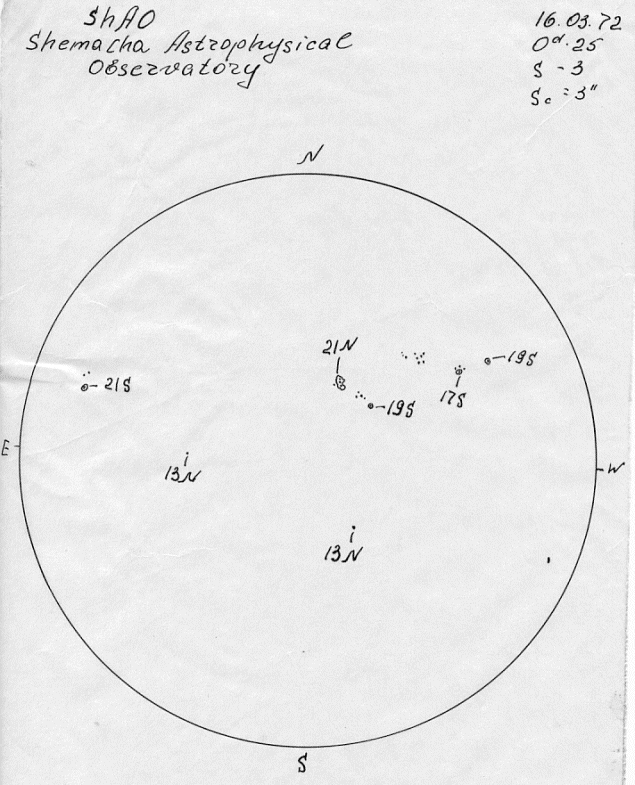 ShAO
Shemacha Astrophysical
Observatory
16.03.72
0ᵈ.25
S - 3
Sc = 3"
N
21N
19S
21S
17S
19S
E
13N
W
13N
S